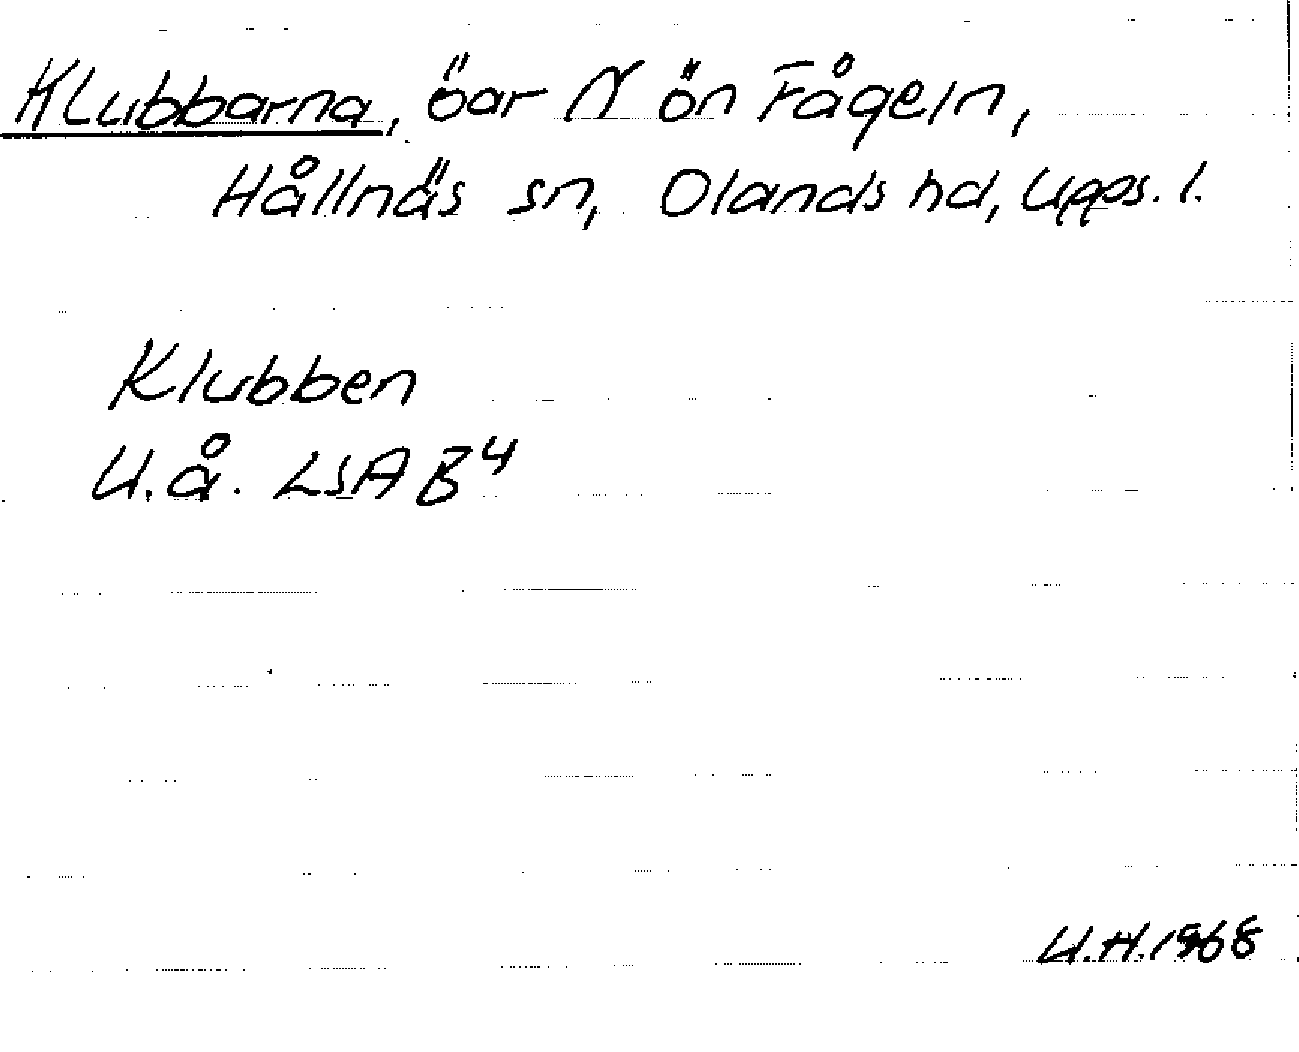 Klubbarna, öar N ön Fågeln,
Hållnäs sn, Olands hd, Upps. l.
Klubben
U.å. LSA B4
U.H. 1968